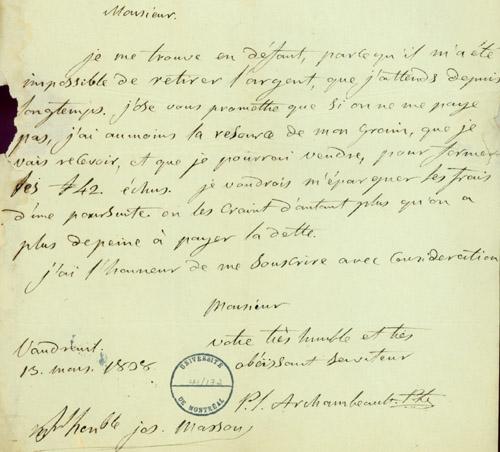 Monsieur.
je me trouve en défaut, parcequ'il m'a été
impossible de retirer l'argent, que j'attends depuis
longtemps. j'ose vous promettre que si on ne me paye
pas, j'ai aumoins la resource de mon grain, que je
vais recevoir, et que je pourrai vendre, pour former
les 42. échus. je voudrois m'éparguer les frais
d'une poursuite. on les craint d'autant plus qu'on a
plus de peine à payer la dette.
j'ai l'honneur de me souscrire avec consideration
Monsieur
votre très humble et très
obéissant serviteur
Vaudreuil.
13. mars. 1838
UNIVERSITÉ
DE MONTRÉAL
P. J. Archambeault. Ptre
honble jos. Masson